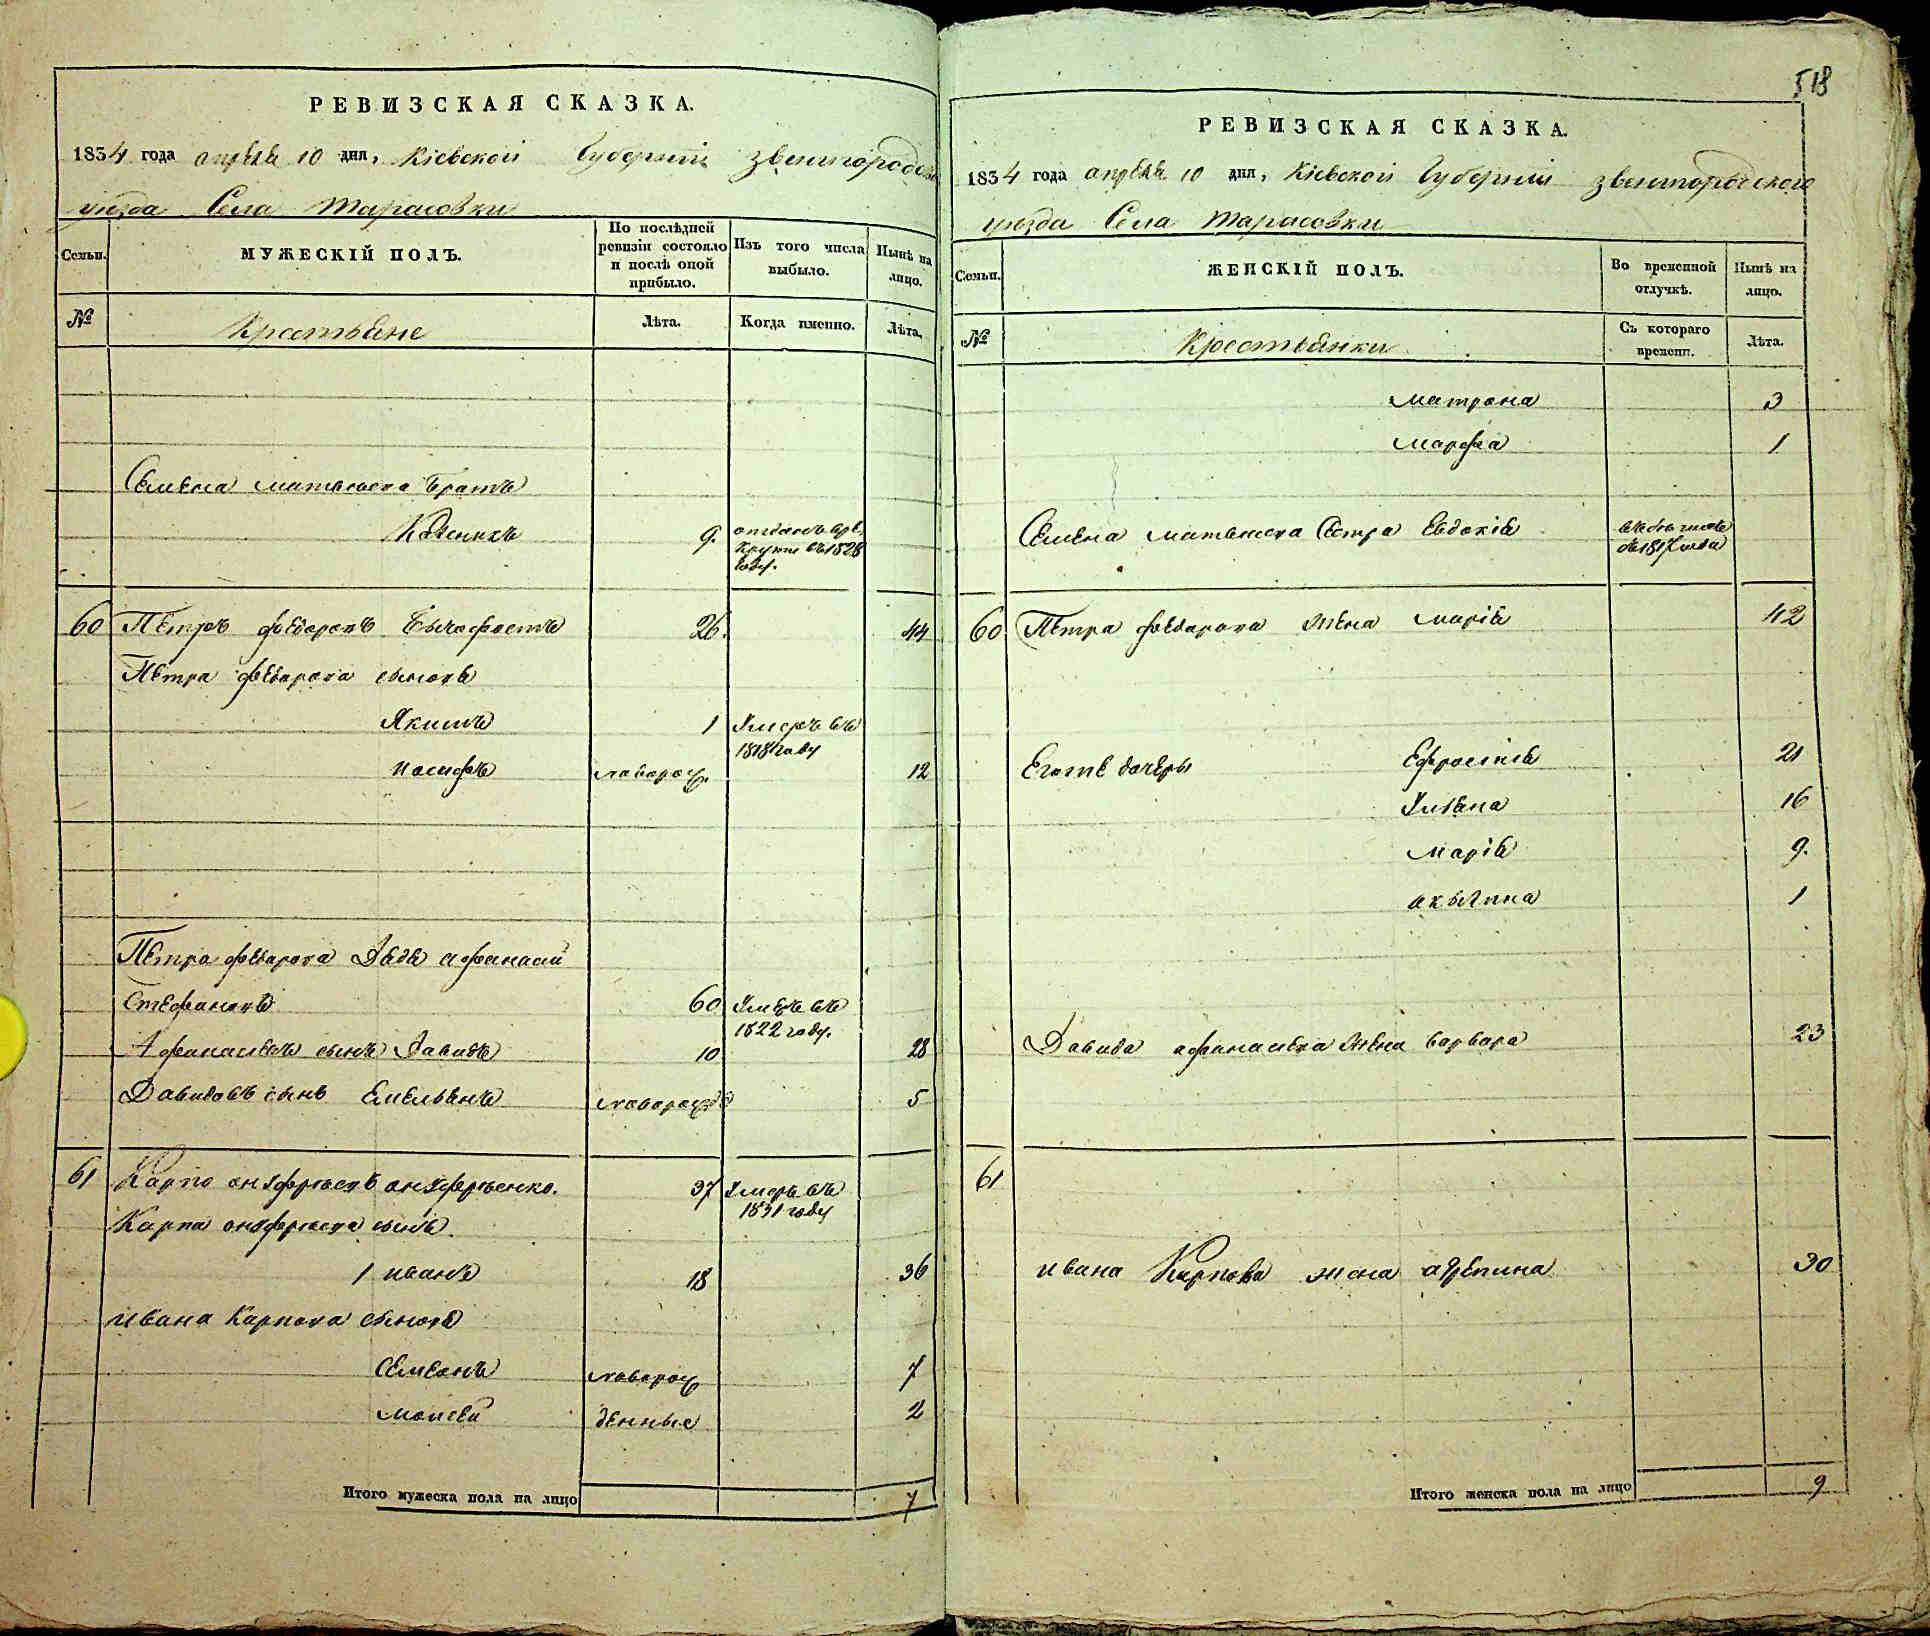 РЕВИЗСКАЯ СКАЗКА.
1834 года апреля 10 дня, Кіевской Губерніи звенигородска
уѣзда Села Тарасовки
Семьи.
МУЖЕСКІЙ ПОЛЪ.
По послѣдней ревизіи состояло и послѣ оной прибыло.
Изъ того числа выбыло.
Нынѣ на лицо.
№
Крестьяне
Лѣта.
Когда именно.
Лѣта.
Семена матвеева Братъ
9. отданъ врекруты въ 1828 году.
60 Петръ федоровъ 26. 44
Петра федорова сыновя
Якимъ 1 Умеръ въ 1818 году
иосифъ новорож. 12
Петра федорова Дядя афанасий
Стефановъ 60 Умеръ въ 1822 году.
Афанасиевъ сынъ Давидъ 10 28
Давидовъ сынъ Емельянъ новорожд 5
61 Карпо онуфриевъ онуфриенко. 37 Умеръ въ 1831 году
Карпа онуфриева сынъ.
1 иванъ 18 36
ивана Карпова сыновя
Семенъ новорож 7
Мойсей денные 2
Итого мужеска пола на лицо 7
518
РЕВИЗСКАЯ СКАЗКА.
1834 года апреля 10 дня, Кіевской Губерніи звенигородского
уѣзда Села Тарасовки
Семьи.
ЖЕНСКІЙ ПОЛЪ.
Во временной отлучкѣ.
Нынѣ на лицо.
№
Крестьянки
Съ котораго времени.
Лѣта.
Матрона 3
Марфа 1
Семена матвеева Сестра Евдокія въ съ 1817 года
60 Петра федорова жена Марія 42
Егоже дочеры Ефросінія 21
Уляна 16
Марія 9.
акылина 1
Давида афанасиева жена варвара 23
61
ивана Карпова жена агрепина 30
Итого женска пола на лицо 9